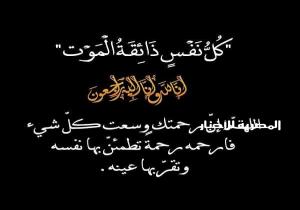 "كُلُّ نَفْسٍ ذَائِقَةُ الْمَوْت"
إنا لله وإنا إليه راجعون
رحمتك وسعت كلّ شيء
فارحمه رحمةً تطمئنّ بها نفسه
وتقرّ بها عينه .